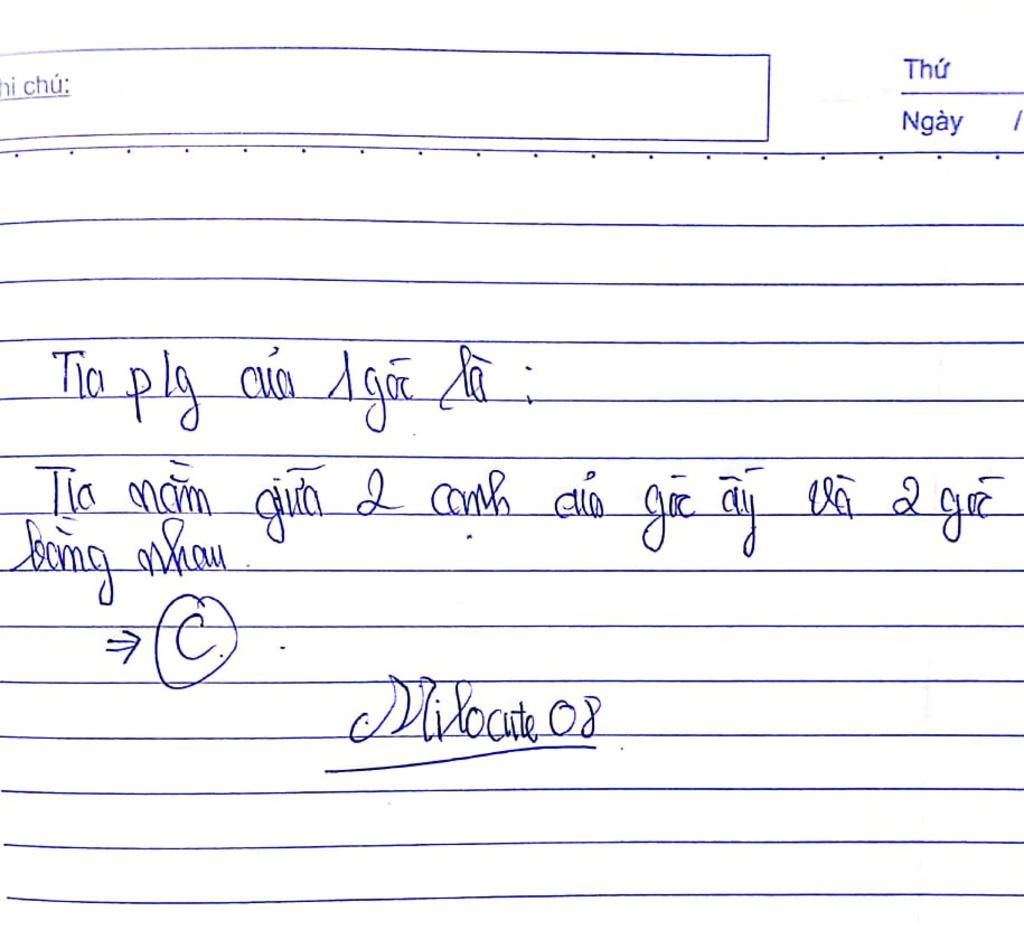 hi chú:
Thứ
Ngày /
Tia p/g của 1 góc là :
Tia nằm giữa 2 cạnh của góc ấy và 2 góc
bằng nhau
⇒ C .
Milocute 08